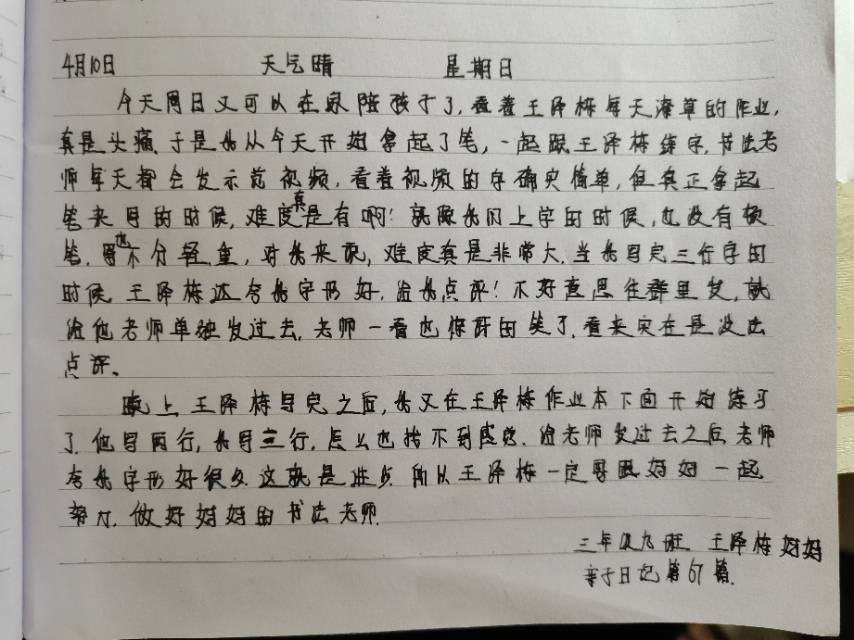 4月10日 天气晴 星期日
今天周日又可以在家陪孩子了,看着王泽栋每天潦草的作业,
真是头痛、于是我从今天开始拿起了笔,一起跟王泽栋练字,书法老
师每天都会发示范视频,看着视频的字确实简单,但真正拿起
笔来写的时候,难度真是有啊!就像我们上学的时候,也没有顿
笔,写也不分轻重,对我来说,难度真是非常大.当我写完三行字的
时候,王泽栋还夸我字形好,给我点评!不好意思往群里发,就
给他老师单独发过去,老师一看也惊讶的笑了,看来实在是没法
点评。
晚上王泽栋写完之后,我又在王泽栋作业本下面开始练习
了.他写两行,我写三行,怎么也找不到感觉.给老师发过去之后老师
夸我字形好很多.这就是进步.所以王泽栋一定要跟妈妈一起
努力.做好妈妈的书法老师.
三年级九班 王泽栋妈妈
亲子日记第67篇.